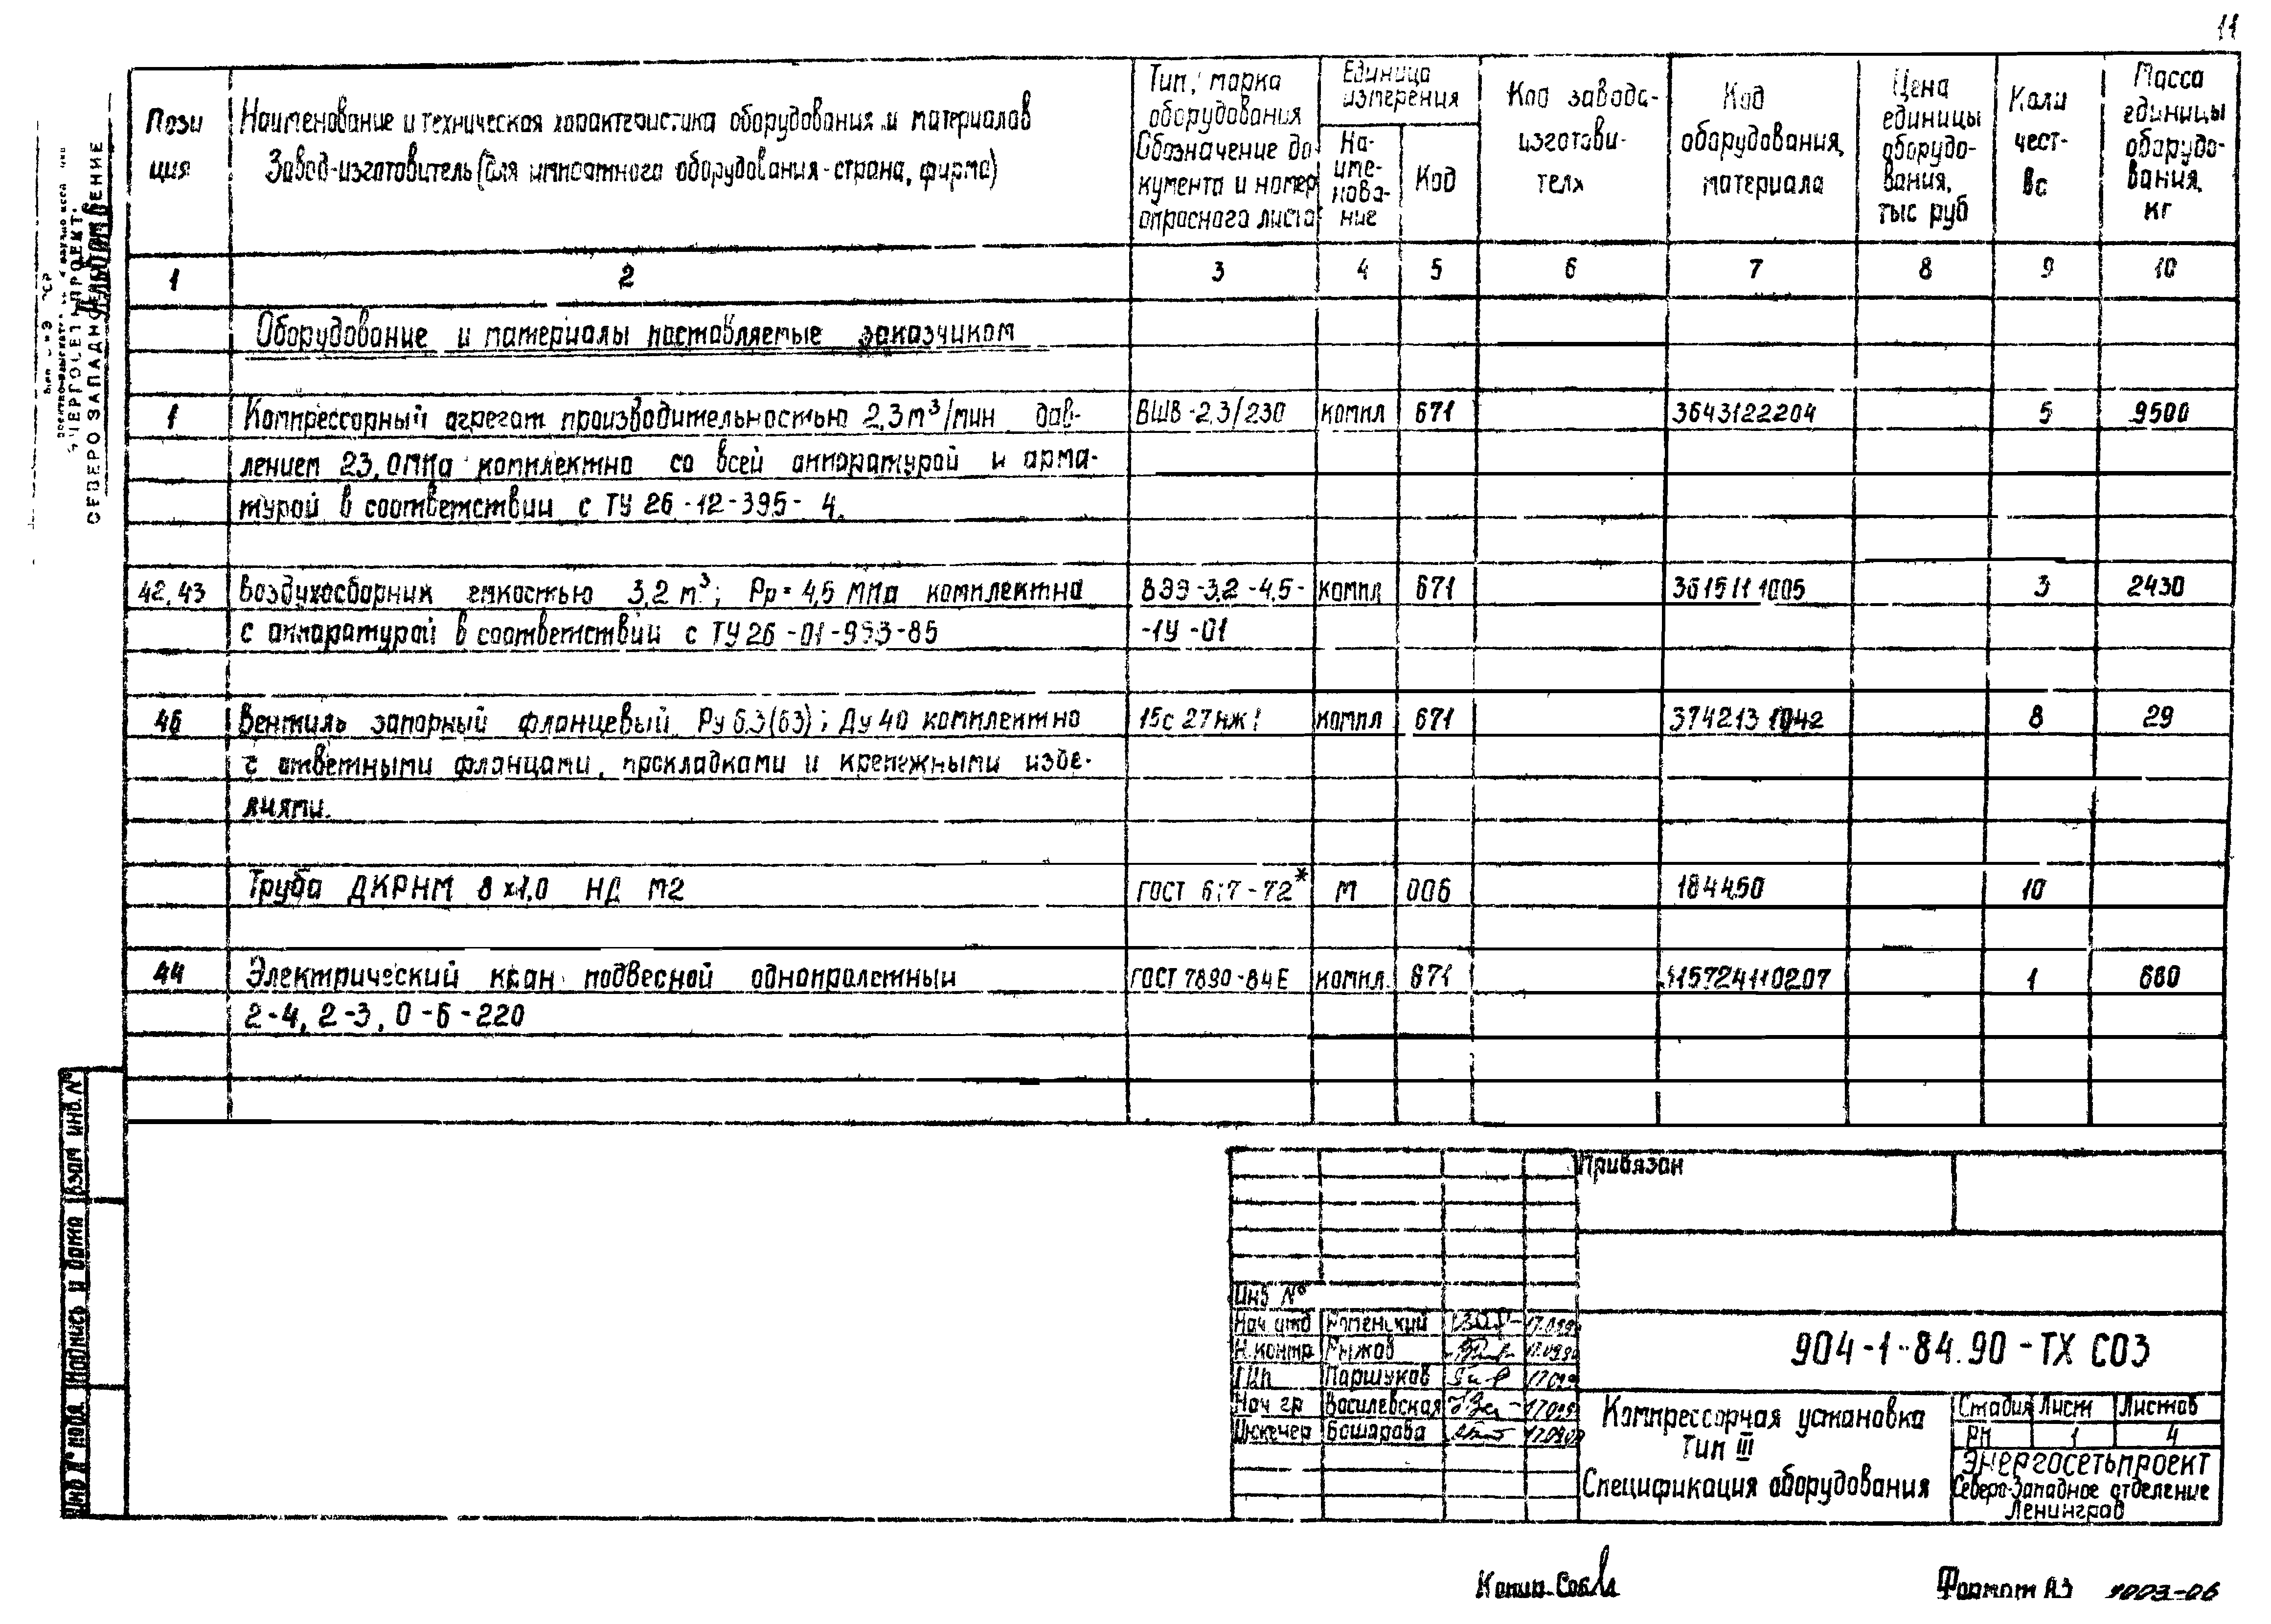 11
Пози
ция
Наименование и техническая характеристика оборудования и материалов
Завод-изготовитель (для импортного оборудования - страна, фирма)
Тип, марка
оборудования
Обозначение до
кумента и номер
опросного листа
Единица
измерения
На-
име-
нова-
ние
Код
Код завода-
изготови-
теля
Код
оборудования,
материала
Цена
единицы
оборудо-
вания,
тыс руб
Коли
чест-
во
Масса
единицы
оборудо-
вания,
кг
1 2 3 4 5 6 7 8 9 10
Оборудование и материалы поставляемые заказчиком
1 Компрессорный агрегат производительностью 2,3 м³/мин дав- ВШВ-2,3/230 компл 671 3643122204 5 9500
лением 23,0МПа комплектно со всей аппаратурой и арма-
турой в соответствии с ТУ 26-12-395- 4.
42,43 Воздухосборник емкостью 3,2 м³; Рр=4,5 МПа комплектно ВЭЭ-3,2-4,5- компл 671 3615111005 3 2430
с аппаратурой в соответствии с ТУ 26-01-993-85 -1У-01
46 Вентиль запорный фланцевый Ру 6.3(63); Ду 40 комплектно 15с 27нж1 компл 671 374213 1042 8 29
с ответными фланцами, прокладками и крепежными изде-
лиями.
Труба ДКРНМ 8х1,0 НД М2 ГОСТ 617-72* М 006 184450 10
44 Электрический кран подвесной однопролетный ГОСТ 7890-84Е компл. 671 315724110207 1 680
2-4,2-3,0-6-220
СЕВЕРО ЗАПАДНОЕ
Взам инв. №
Подпись и дата
Инв № подл
Привязан
Инв №
Нач отд Роменский
Н.контр Рыжов
ГИП Паршуков
Нач гр Василевская
Инженер Башарова
904-1-84.90-ТХ СО3
Компрессорная установка
Тип III
Спецификация оборудования
Стадия Лист Листов
РП 1 4
ЭНЕРГОСЕТЬПРОЕКТ
Северо-Западное отделение
Ленинград
Копир.
Формат А3